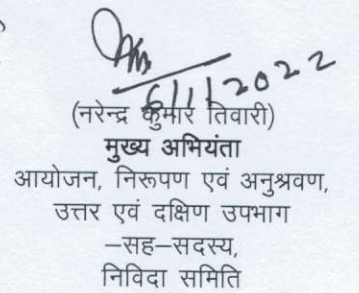 6/1/2022
(नरेन्द्र कुमार तिवारी)
मुख्य अभियंता
आयोजन, निरूपण एवं अनुश्रवण,
उत्तर एवं दक्षिण उपभाग
–सह–सदस्य,
निविदा समिति